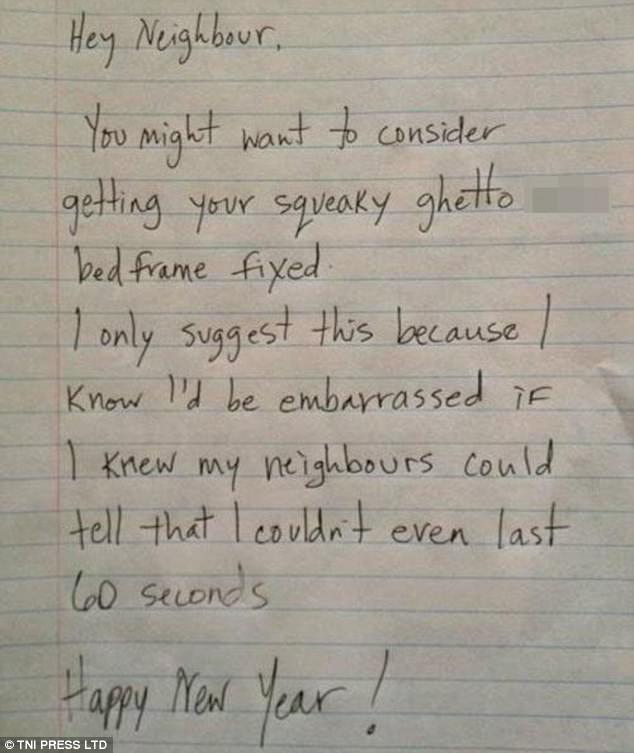 Hey Neighbour,
You might want to consider
getting your squeaky ghetto
bedframe fixed.
I only suggest this because I
know I'd be embarrassed if
I knew my neighbours could
tell that I couldn't even last
60 seconds
Happy New Year!
© TNI PRESS LTD